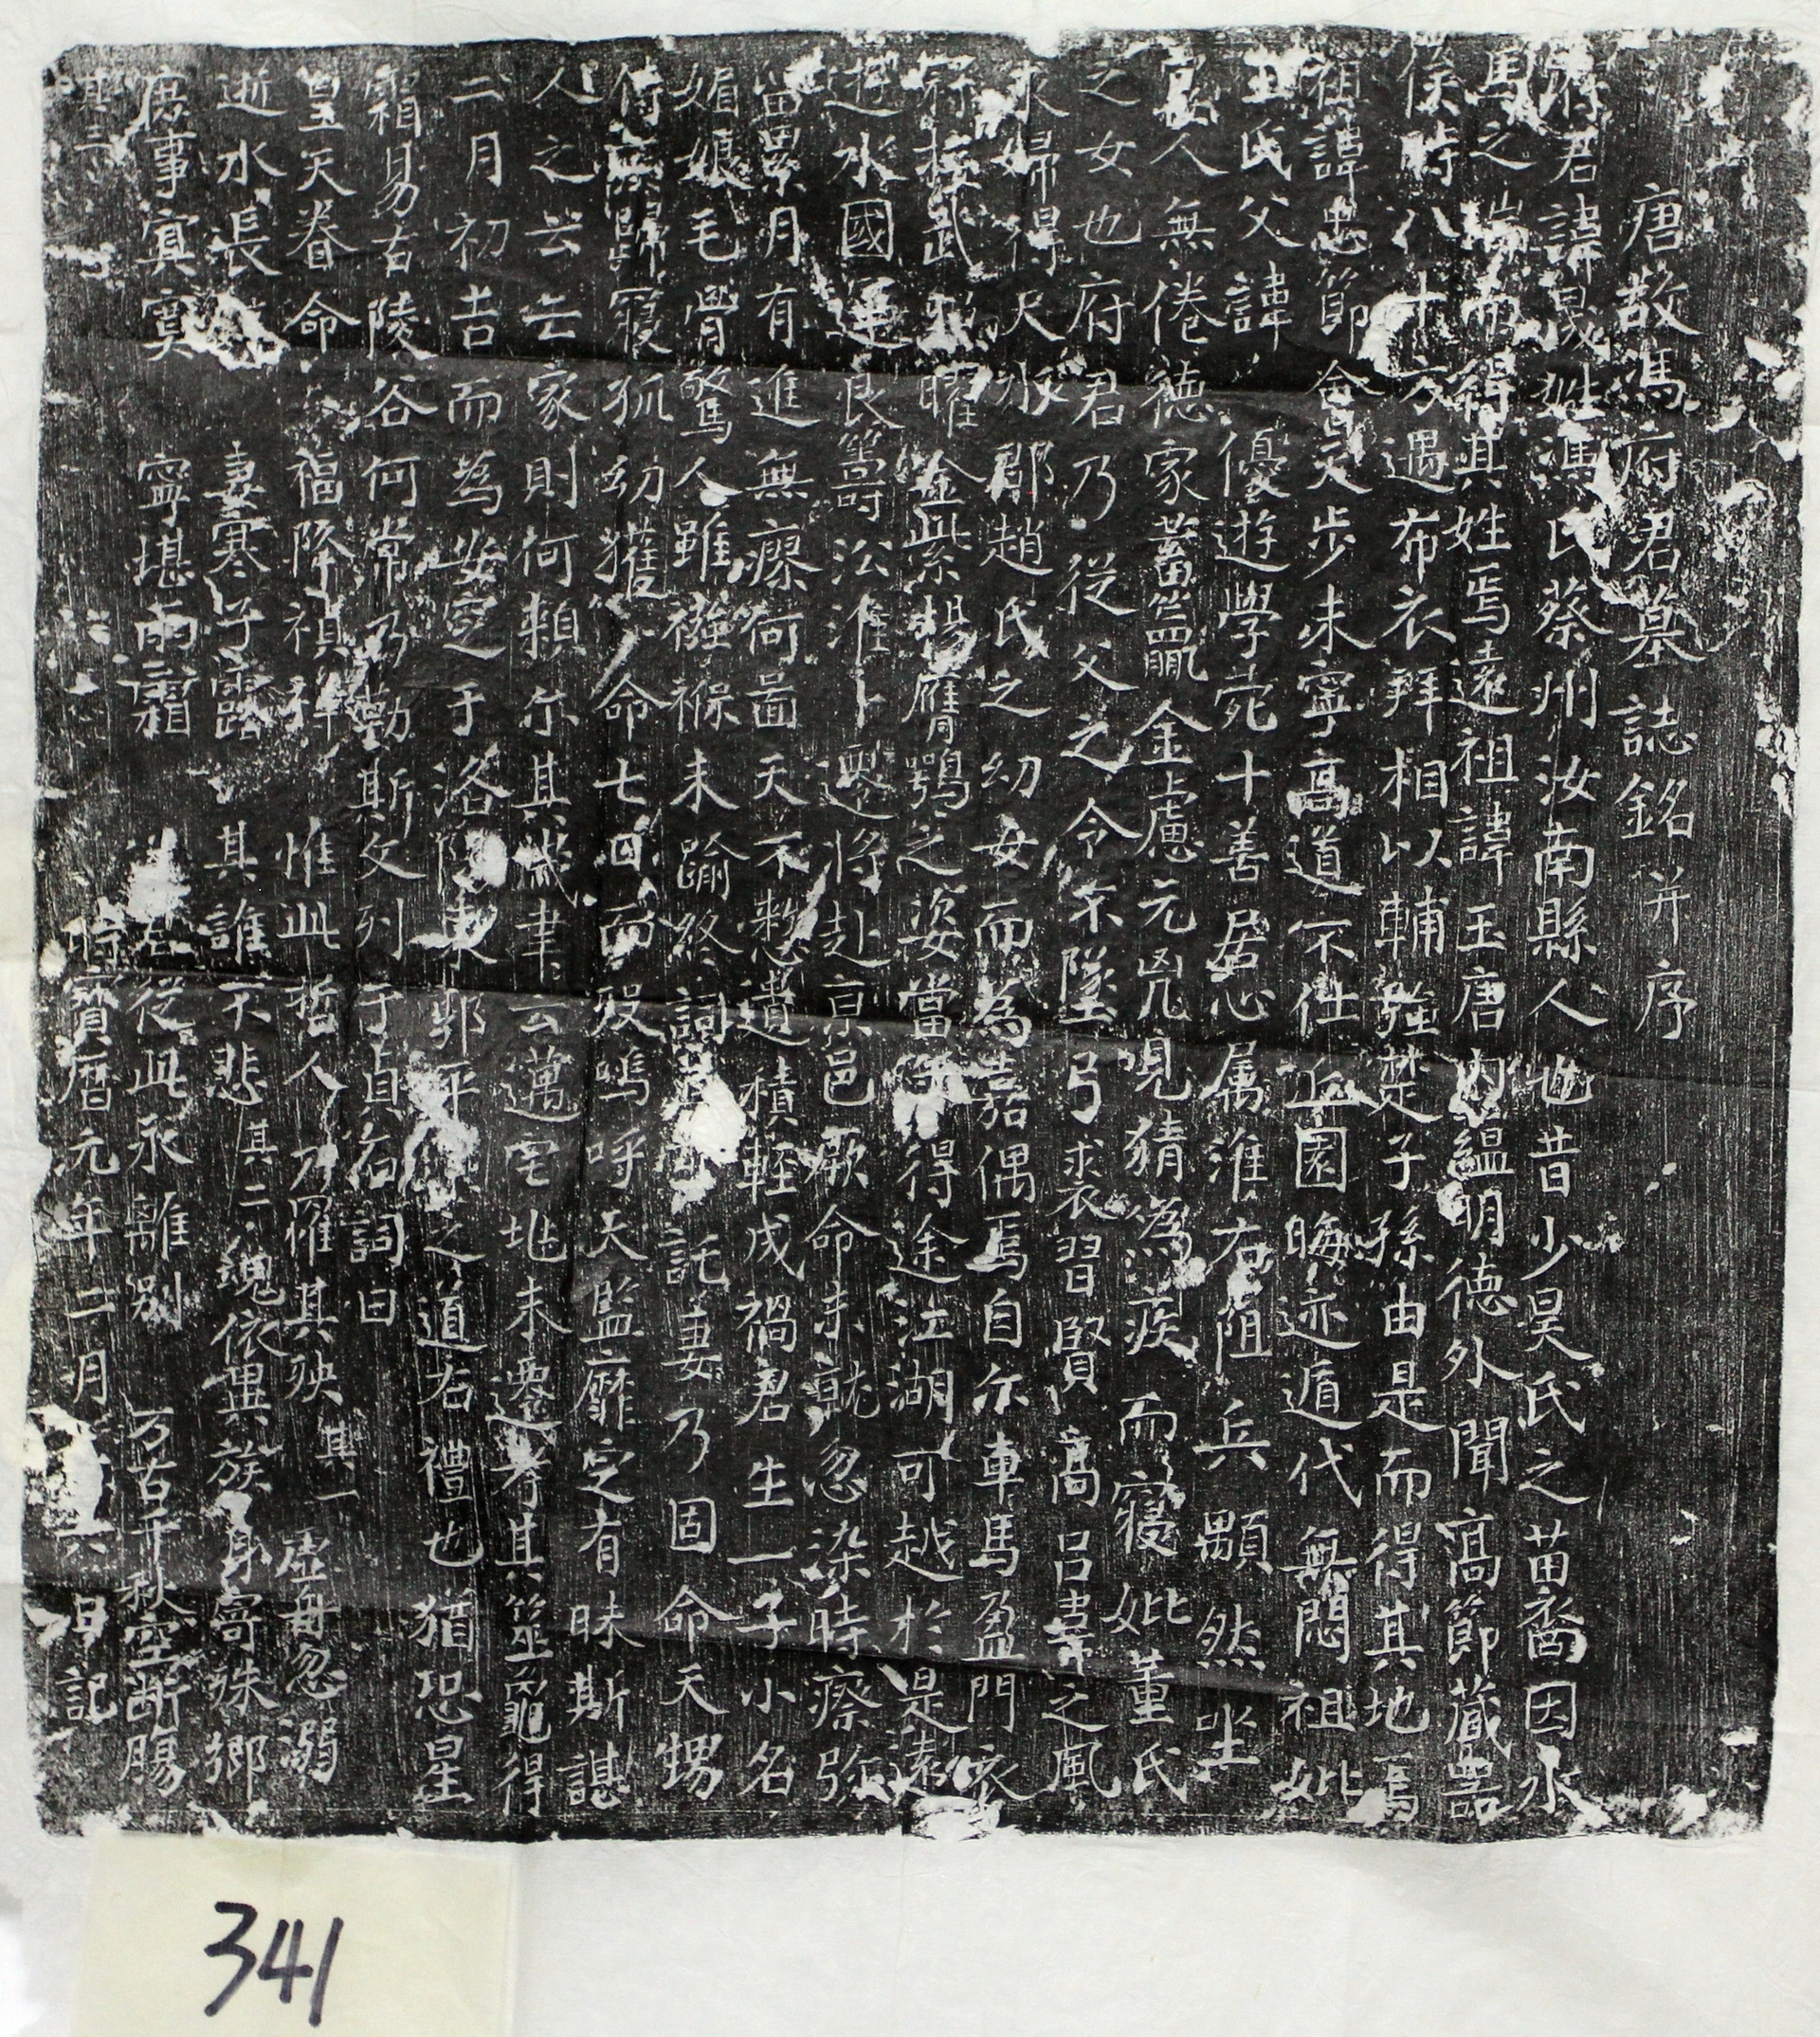 唐故馮府君墓誌銘并序
府君諱晟姓馮氏蔡州汝南縣人也昔少昊氏之苗裔因水
馬之瑞而得其姓焉遠祖諱王唐內緼明德外聞高節藏器
侯時八十方遇布衣拜相以輔強楚子孫由是而得其地焉
祖諱忠節會天步未寧高道不仕丘園晦迹遁代無悶祖妣
王氏父諱優遊學宛十善居心属淮右阻兵顒然坐
人無倦德家蓄籯金慮元兇見猜為疾而寢妣董氏
之女也府君乃從父之令不墜弓裘習賢高呂韋之風
歸得天水郡趙氏之幼女而為嘉偶焉自尔車馬盈門衣
武曜金紫楊鷹鶚之姿當得途江湖可越於是遠
水國運良籌汎淮卜將赴京邑厥命未就忽染時瘵弥
留累月有進無瘳何啚天不憗遺積軽成禍君生一子小名
媚娘毛骨驚人雖襁褓未踰終詞託妻乃固命天甥
侍無歸寢孤幼獲命七日而歿嗚呼天監靡定有昧斯諶
人之云亡家則何頼尔其云邁宅兆未遷考其筮龜得
二月初吉而為安之于洛陽東郭平之道右禮也猶恐星
霜易古陵谷何常乃勒斯文列于貞石詞曰
皇天眷命福降禎祥惟此哲人乃罹其殃其一虛舟忽溺
逝水長妻寒子露其誰不悲其二魂依異族身寄殊鄉
庶事寘寞寧堪雨霜從此永離別万古千秋空断腸
其三時寶曆元年二月六日記
341